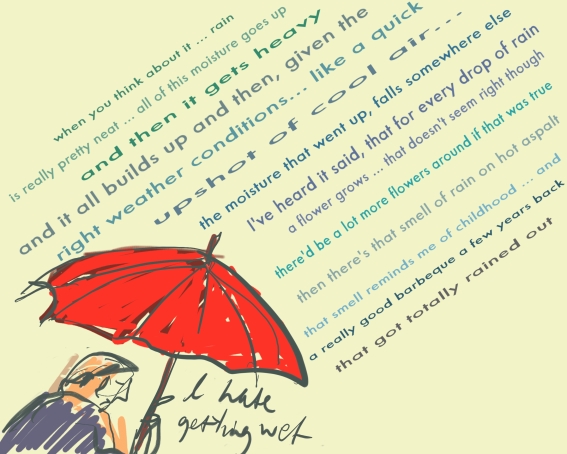 when you think about it ... rain
is really pretty neat ... all of this moisture goes up
and then it gets heavy
and it all builds up and then, given the
right weather conditions... like a quick
upshot of cool air---
the moisture that went up, falls somewhere else
I've heard it said, that for every drop of rain
a flower grows ... that doesn't seem right though
there'd be a lot more flowers around if that was true
then there's that smell of rain on hot aspalt
that smell reminds me of childhood ... and
a really good barbeque a few years back
that got totally rained out
I hate
getting wet